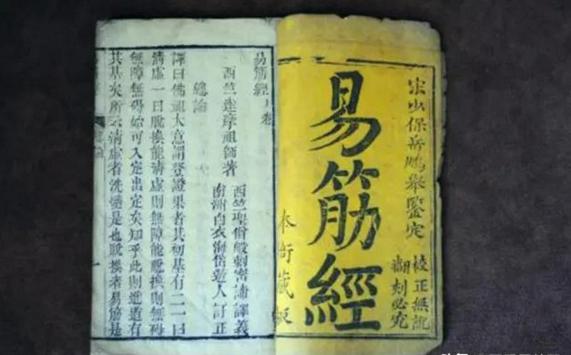 宋少保岳鵬舉鑒定
校正無訛
翻刻必究
易筋經
本衙藏板
易筋經上卷
西竺達摩祖師著
西竺聖僧般剌密諦譯義
南洲白衣海岱遊人訂正
總論
譯曰佛祖大意謂登證果者其初基有二一曰
清虛一曰脫換能清虛則無障能脫換則無碍
無障無碍始可入定出定矣知乎此則進道有
其基矣所云清虛者洗髓是也脫換者易筋是